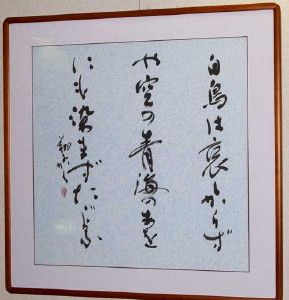 白鳥は哀しからず
や空の青海のあを
にも染まずたゞよふ